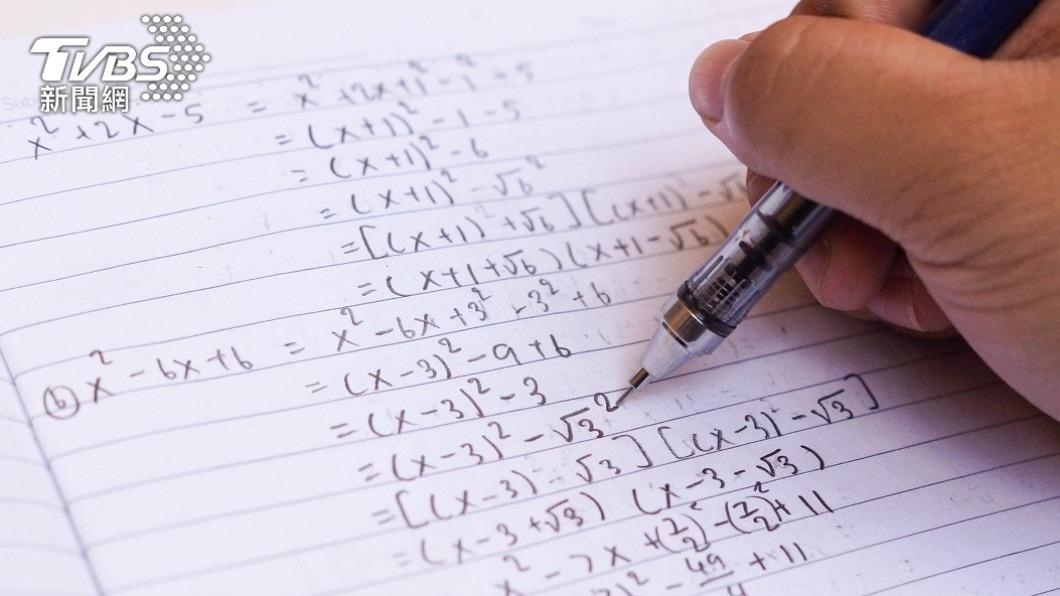 TVBS
新聞網
x² + 2x - 5 = x² + 2x + 1² - 1² - 5
= (x+1)² - 1 - 5
= (x+1)² - 6
= (x+1)² - √6²
= [(x+1)² + √6] [(x+1)² - √6
= (x+1+√6) (x+1-√6)
ⓑ x² - 6x + 6 = x² - 6x + 3² - 3² + 6
= (x-3)² - 9 + 6
= (x-3)² - 3
= (x-3)² - √3²
= [(x-3) - √3] [(x-3) - √3]
= (x-3+√3) (x-3-√3)
x² - 7x + (7/2)² - (7/2)² + 11
)² - 49/4 + 11